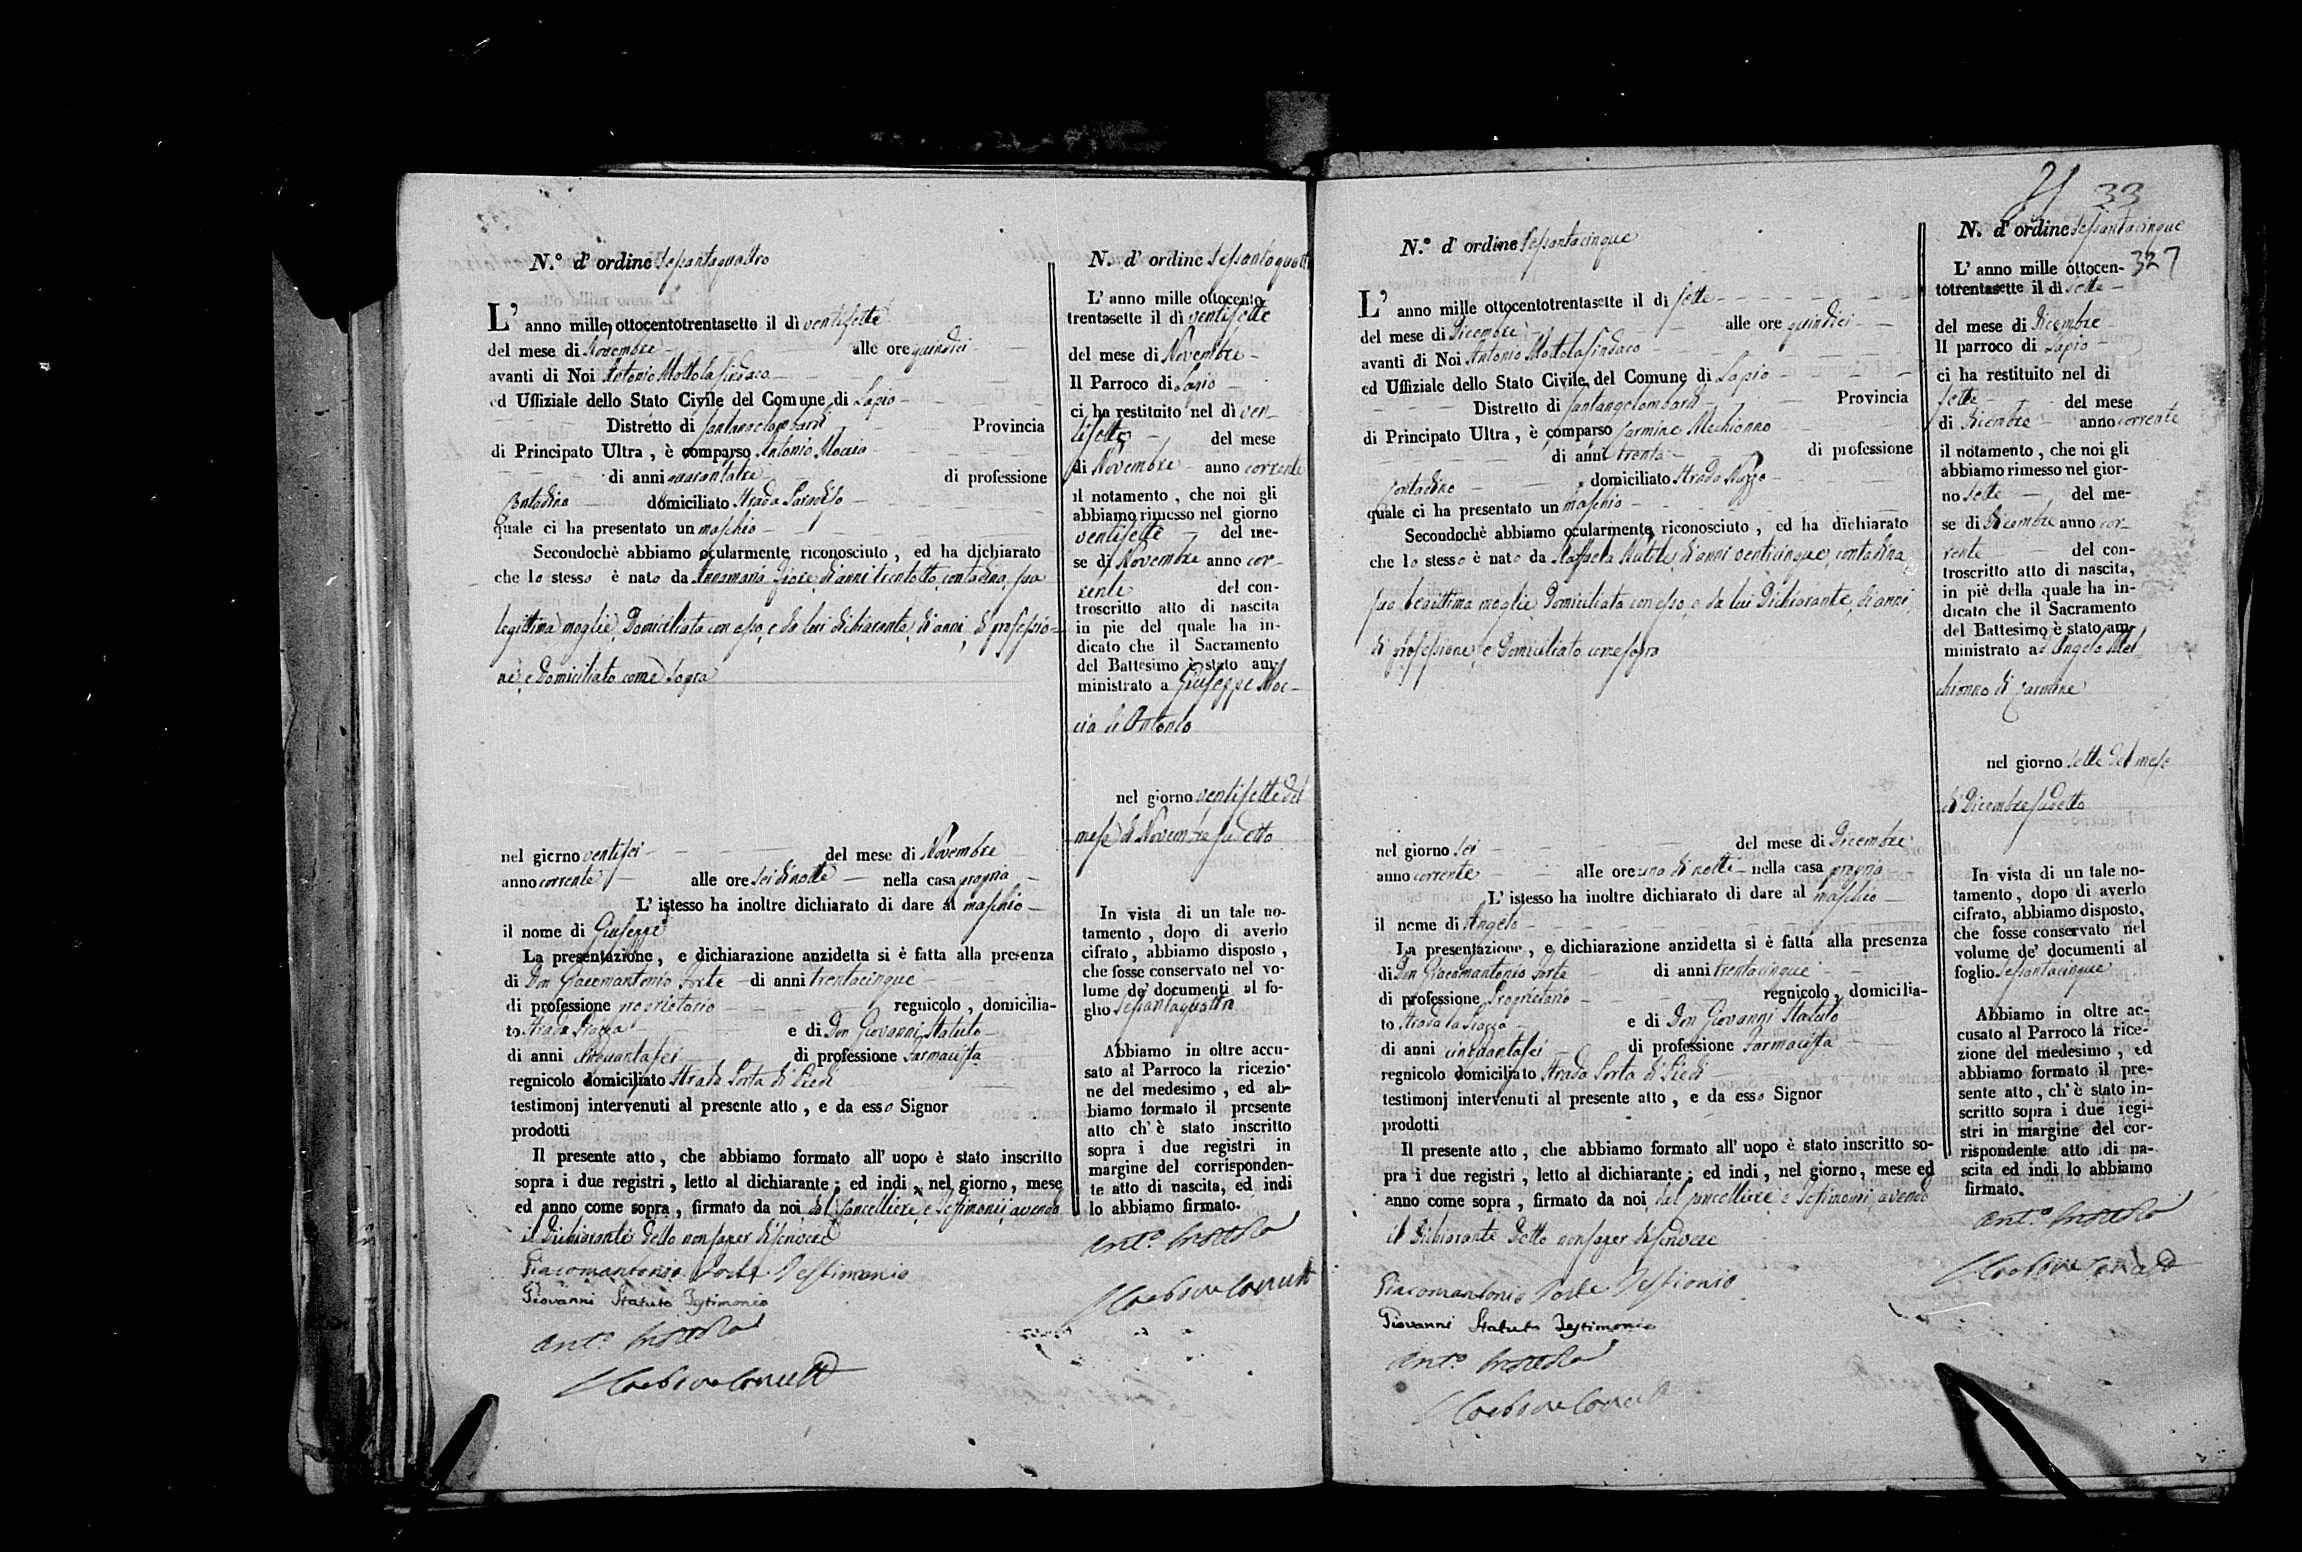 N.° d' ordine Sessantaquattro
L' anno mille ottocentotrentasette il dì ventisette
del mese di Novembre alle ore quindici
avanti di Noi Antonio Mottola Sindaco
ed Uffiziale dello Stato Civile del Comune di Lapio
Distretto di Santangelombardi Provincia
di Principato Ultra, è comparso Antonio Moccia
di anni quarantatre di professione
Contadino domiciliato Strada Paradiso
quale ci ha presentato un maschio
Secondochè abbiamo ocularmente riconosciuto, ed ha dichiarato
che lo stesso è nato da Annamaria Fiore di anni trentotto, contadina, sua
legittima moglie, Domiciliata con esso, e da lui dichiarante, di anni, di professio-
ne, e Domiciliato come sopra
nel giorno ventisei del mese di Novembre
anno corrente alle ore sei di notte nella casa propria
L' istesso ha inoltre dichiarato di dare al maschio
il nome di Giuseppe
La presentazione, e dichiarazione anzidetta si è fatta alla presenza
di Don Giacomantonio Forte di anni trentacinque
di professione proprietario regnicolo, domicilia-
to Strada Piazza e di Don Giovanni Statuto
di anni cinquantasei di professione Farmacista
regnicolo domiciliato Strada Porta di Piedi
testimonj intervenuti al presente atto, e da esso Signor
prodotti
Il presente atto, che abbiamo formato all' uopo è stato inscritto
sopra i due registri, letto al dichiarante; ed indi, nel giorno, mese
ed anno come sopra, firmato da noi dal Cancelliere, e Testimonii, avendo
il Dichiarante detto non saper di scrivere
Giacomantonio Forte Testimonio
Giovanni Statuto Testimonio
Ant.° Mottola
N. d' ordine Sessantaquatt
L' anno mille ottocento
trentasette il dì ventisette
del mese di Novembre
Il Parroco di Lapio
ci ha restituito nel dì ven-
tisette del mese
di Novembre anno corrente
il notamento, che noi gli
abbiamo rimesso nel giorno
ventisette del me-
se di Novembre anno cor-
rente del con-
troscritto atto di nascita
in piè del quale ha in-
dicato che il Sacramento
del Battesimo è stato am-
ministrato a Giuseppe Moc-
cia di Antonio
nel giorno ventisette del
mese di Novembre sudetto
In vista di un tale no-
tamento, dopo di averlo
cifrato, abbiamo disposto,
che fosse conservato nel vo-
lume de' documenti al fo-
glio Sessantaquattro
Abbiamo in oltre accu-
sato al Parroco la ricezio-
ne del medesimo, ed ab-
biamo formato il presente
atto ch' è stato inscritto
sopra i due registri in
margine del corrisponden-
te atto di nascita, ed indi
lo abbiamo firmato.
Ant.° Mottola
33
N.° d' ordine Sessantacinque
L' anno mille ottocentotrentasette il dì sette
del mese di Dicembre alle ore quindici
avanti di Noi Antonio Mottola Sindaco
ed Uffiziale dello Stato Civile del Comune di Lapio
Distretto di Santangelombardi Provincia
di Principato Ultra, è comparso Carmine Mechionno
di anni trenta di professione
Contadino domiciliato Strada Puzzo
quale ci ha presentato un maschio
Secondochè abbiamo ocularmente riconosciuto, ed ha dichiarato
che lo stesso è nato da Raffaela Rutile, di anni venticinque, contadina
sua legittima moglie, Domiciliata con esso, e da lui Dichiarante, di anni,
di professione, e Domiciliato come sopra
nel giorno sei del mese di Dicembre
anno corrente alle ore una di notte nella casa propria
L' istesso ha inoltre dichiarato di dare al maschio
il nome di Angelo
La presentazione, e dichiarazione anzidetta si è fatta alla presenza
di Don Giacomantonio Forte di anni trentacinque
di professione Proprietario regnicolo, domicilia-
to Strada la Piazza e di Don Giovanni Statuto
di anni cinquantasei di professione Farmacista
regnicolo domiciliato Strada Porta di Piedi
testimonj intervenuti al presente atto, e da esso Signor
prodotti
Il presente atto, che abbiamo formato all' uopo è stato inscritto so-
pra i due registri, letto al dichiarante; ed indi, nel giorno, mese ed
anno come sopra, firmato da noi dal Cancelliere, e Testimonii avendo
il Dichiarante detto non saper di scrivere
Giacomantonio Forte Testionio
Giovanni Statuto Testimonio
Ant.° Mottola
N. d' ordine Sessantacinque
L' anno mille ottocen- 327
totrentasette il dì sette
del mese di Dicembre
Il parroco di Lapio
ci ha restituito nel di
sette del mese
di Dicembre anno corrente
il notamento, che noi gli
abbiamo rimesso nel gior-
no sette del me-
se di Dicembre anno cor-
rente del con-
troscritto atto di nascita,
in piè della quale ha in-
dicato che il Sacramento
del Battesimo è stato am-
ministrato ad Angelo Mel
chionno di Carmine
nel giorno sette del mese
di Dicembre sudetto
In vista di un tale no-
tamento, dopo di averlo
cifrato, abbiamo disposto,
che fosse conservato nel
volume de' documenti al
foglio Sessantacinque
Abbiamo in oltre ac-
cusato al Parroco la rice-
zione del medesimo, ed
abbiamo formato il pre-
sente atto, ch' è stato in-
scritto sopra i due regi-
stri in margine del cor-
rispondente atto di na-
scita ed indi lo abbiamo
firmato.
Ant.° Mottola